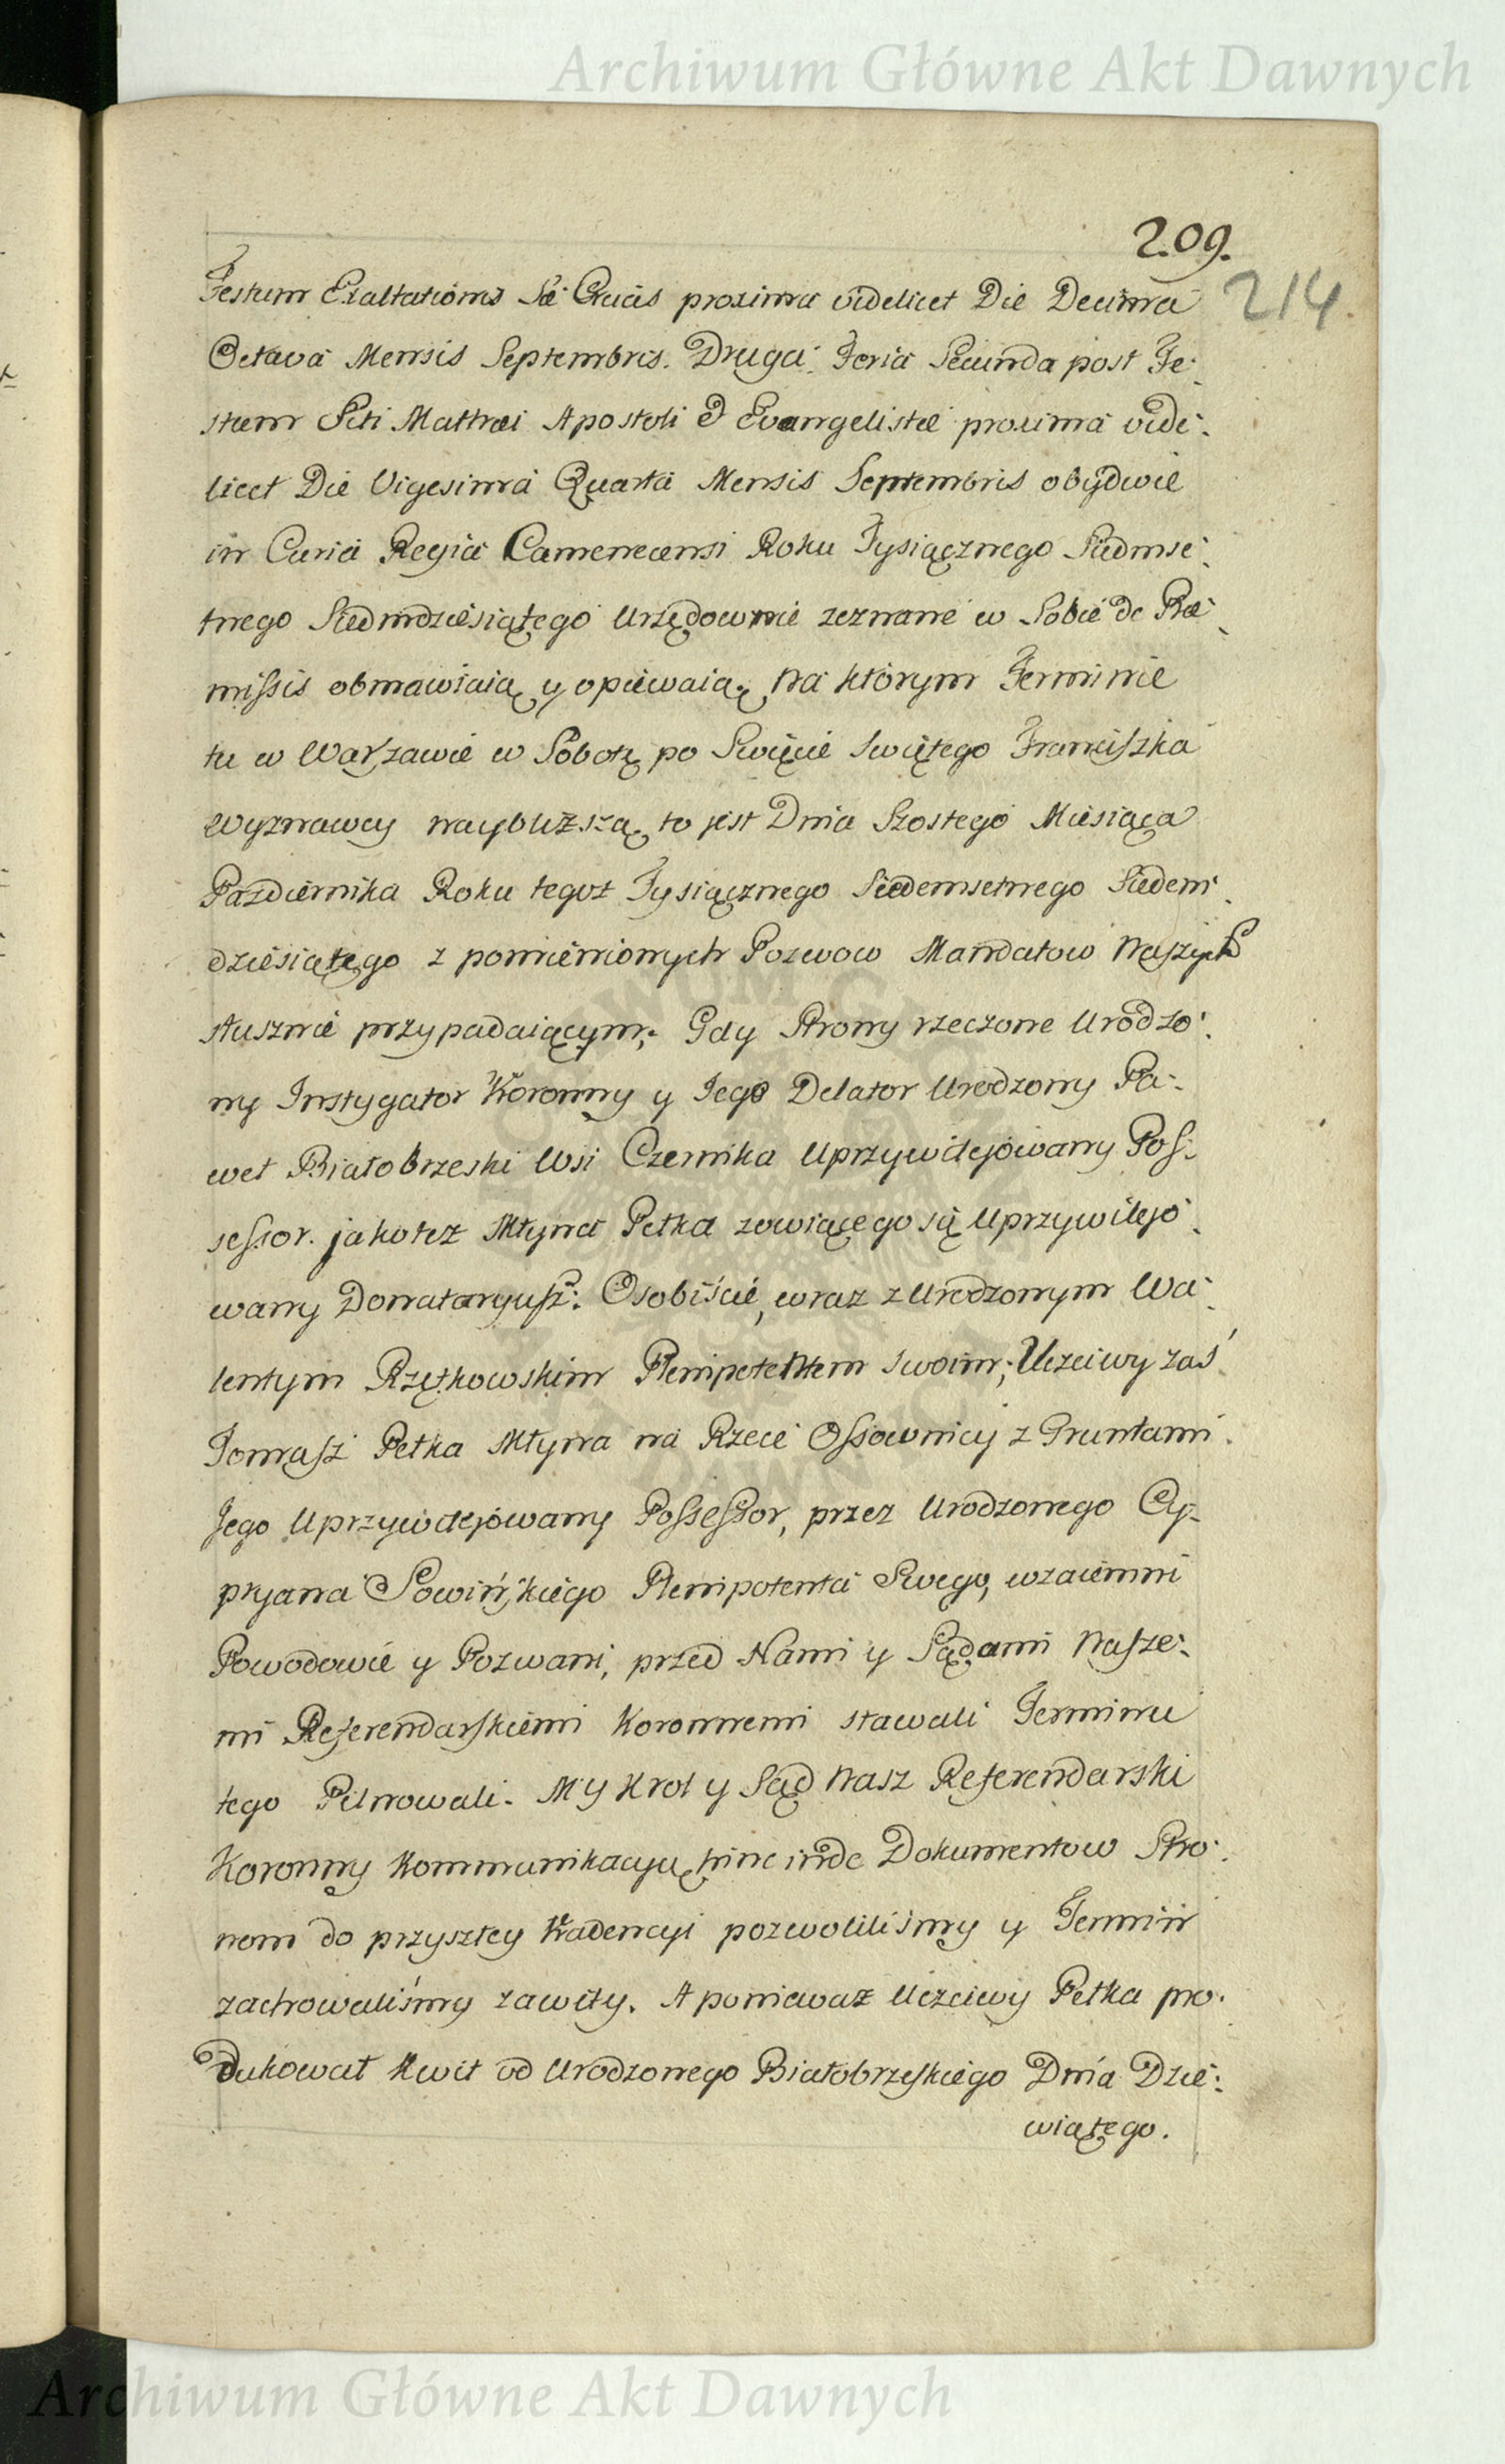 Archiwum Główne Akt Dawnych
209.
214
Festum Exaltationis Sæ Crucis proxima videlicet Die Decima
Octava Mensis Septembris. Druga: Feria Secunda post Fe:
stum Scti Matthæi Apostoli & Evangelistæ proxima vide:
licet Die Vigesima Quarta Mensis Septembris obydwie
in Curia Regia Camenecensi Roku Tysiącznego Siedmse:
tnego Siedmdziesiątego Urzędownie zeznane w Sobie de Præ:
missis obmawiaią y opiewaią. Na ktorym Terminie
tu w Warszawie w Sobotę po Swięcie Swiętego Franciszka
Wyznawcy naybliższą to jest Dnia Szostego Miesiąca
Pazdziernika Roku tegoż Tysiącznego Siedemsetnego Siedem:
dziesiątego z pomienionych Pozwow Mandatow Naszych
słusznie przypadaiącym; Gdy Strony rzeczone Urodzo:
ny Instygator Koronny y Jego Delator Urodzony Pa:
weł Białobrzeski Wsi Czernika Uprzywilejowany Pos:
sessor. jako też Młyna Petka zowiącego się Uprzywilejo:
wany Donataryusz: Osobiście, wraz z Urodzonym Wa:
lentym Rzętkowskim Plenipotentem Swoim; Uczciwy zaś
Tomasz Petka Młyna na Rzece Ossownicy z Gruntami
Jego Uprzywilejowany Possessor, przez Urodzonego Cy-
pryana Sowińskiego Plenipotenta Swego, wzaiemni
Powodowie y Pozwani, przed Nami y Sądami Nasze:
mi Referendarskiemi Koronnemi stawali Terminu
tego Pilnowali. My Krol y Sąd Nasz Referendarski
Koronny Kommunikacyą hinc inde Dokumentow Stro:
nom do przyszłey Kadencyi pozwoliliśmy y Termin
zachowaliśmy zawity. A ponieważ Uczciwy Petka pro:
dukował Kwit od Urodzonego Białobrzeskiego Dnia Dzie:
wiątego.
Archiwum Główne Akt Dawnych